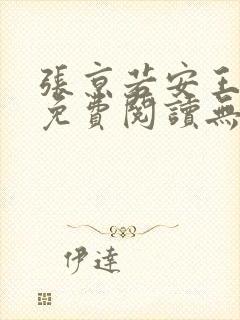 張京若安王
免費閱讀無
伊達